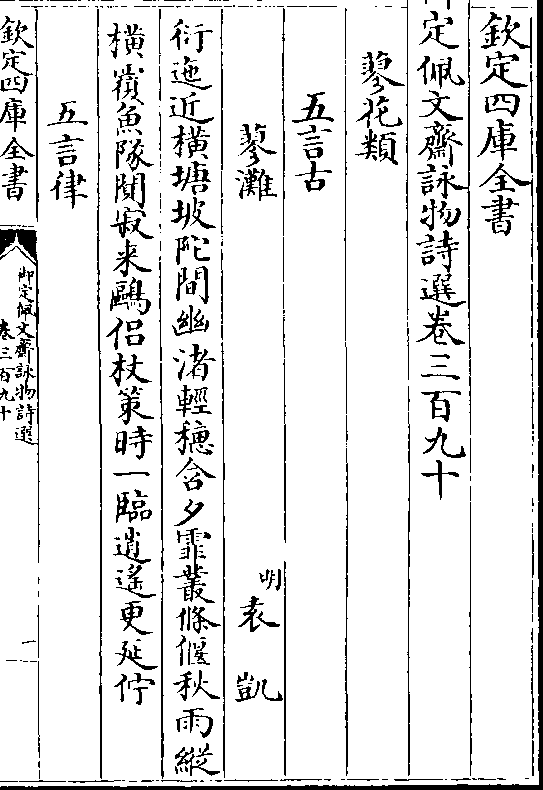 欽定四庫全書
定佩文齋詠物詩選卷三百九十
蓼花類
五言古
蓼灘 明 袁凱
衍迤近橫塘坡陀間幽渚輕穗含夕霏叢條偃秋雨縱
橫嶺魚隊闃寂来鷗侣杖策時一臨逍遙更延佇
五言律
欽定四庫全書
御定佩文齋詠物詩選
卷三百九十
一